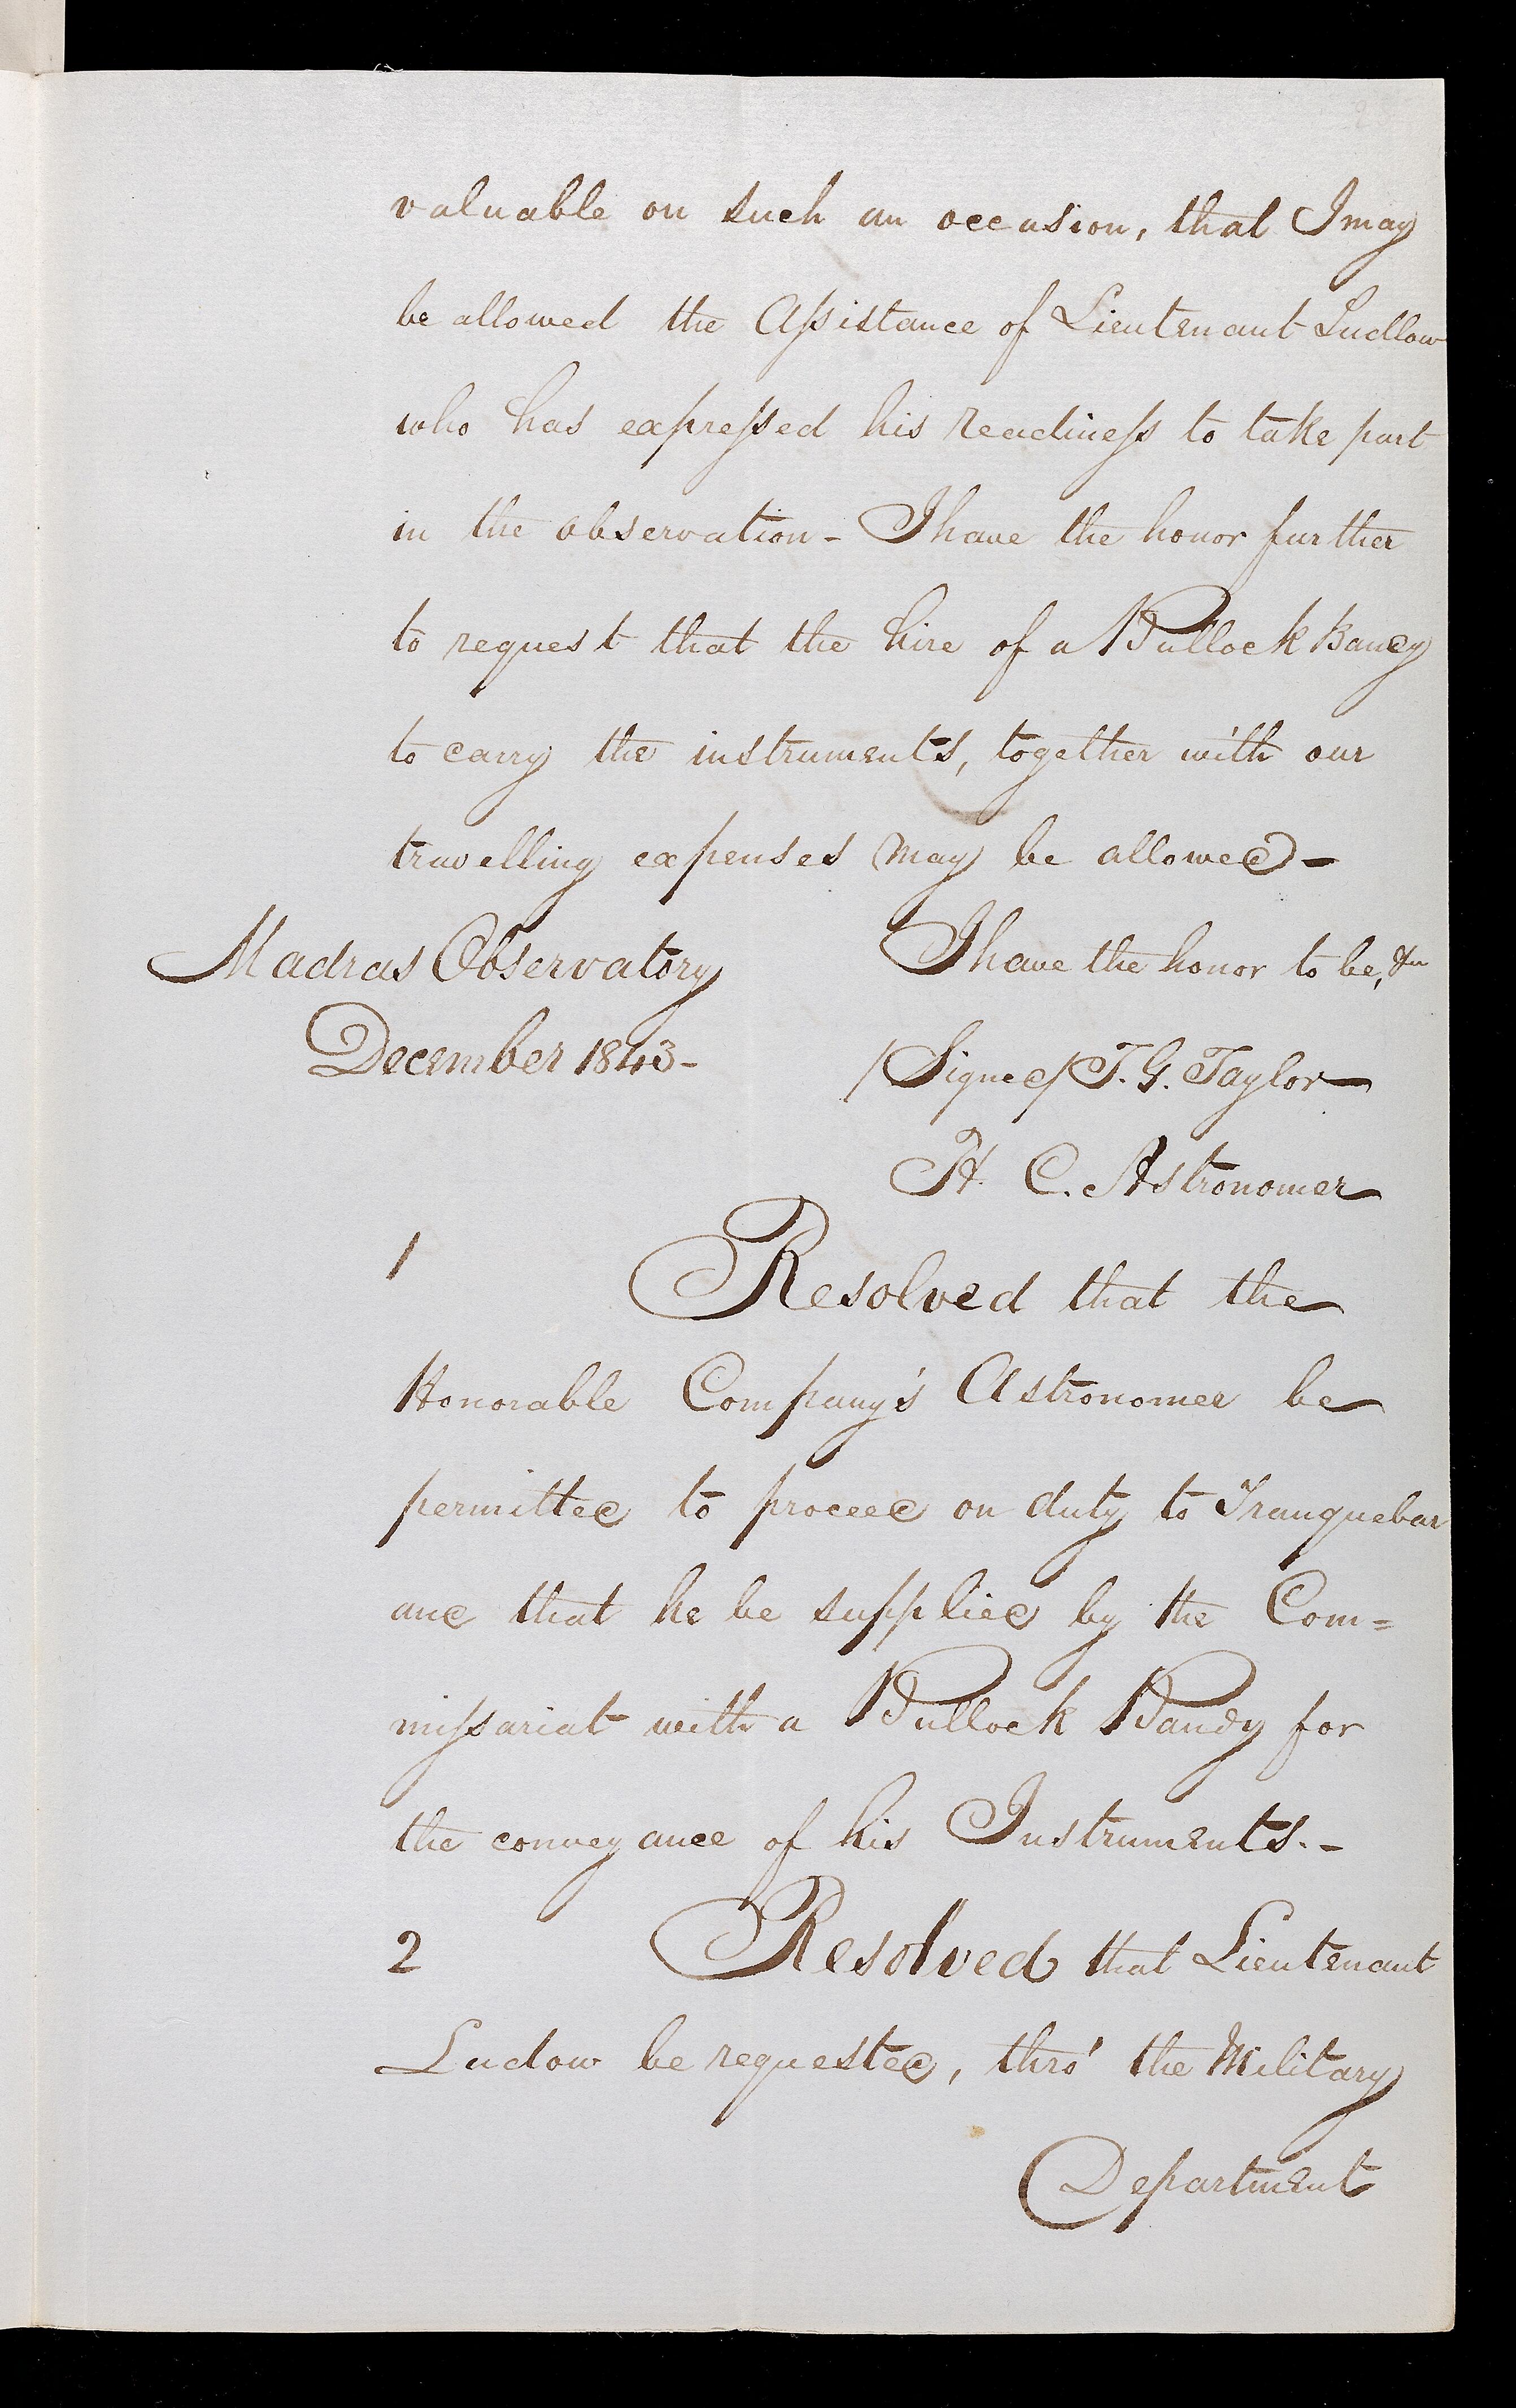 valuable on such an occasion, that I may
be allowed the Assistance of Lieutenant Ludlow
who has expressed his readiness to take part
in the observation - I have the honor further
to request that the hire of a Bullock Bandy
to carry the instruments, together with our
travelling expenses may be allowed -
Madras Observatory
December 1843 -
I have the honor to be, &c
/Signed/ T. G. Taylor
H. C. Astronomer
1 Resolved that the
Honorable Company's Astronomer be
permitted to proceed on duty to Tranquebar
and that he be supplied by the Com=
missariat with a Bullock Bandy for
the conveyance of his Instruments. -
2 Resolved that Lieutenant
Ludow be requested, thro' the Military
Department